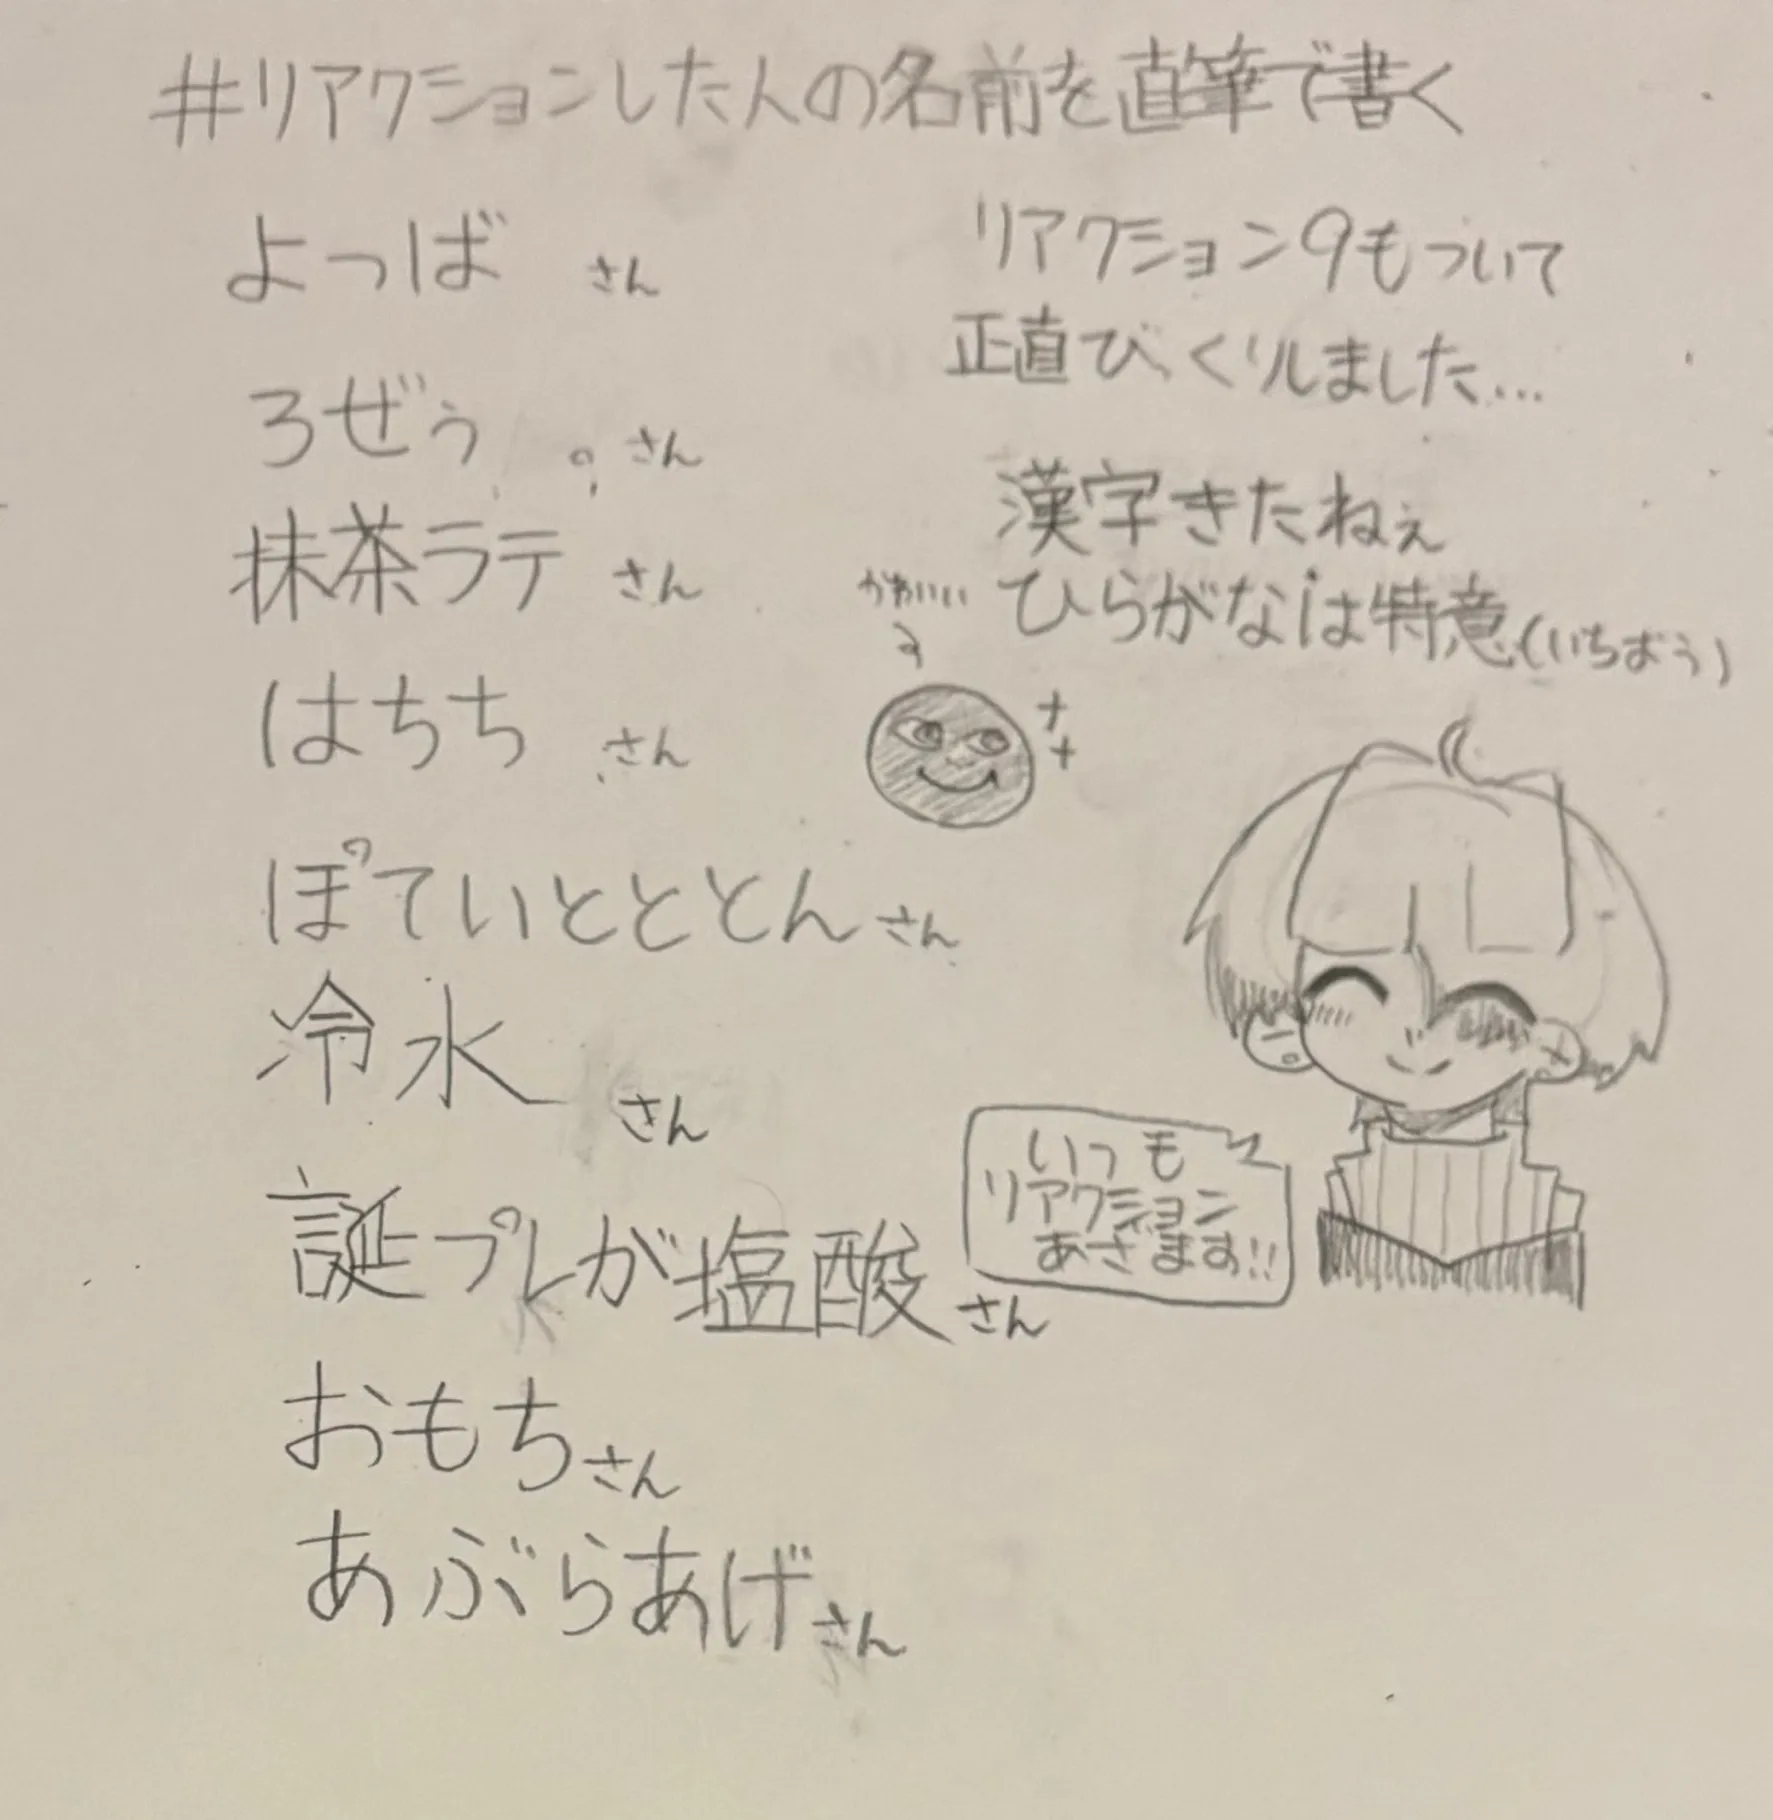 #リアクションした人の名前を直筆で書く
よっば さん
ろぜぅ 。さん
抹茶ラテ さん
はちち さん
ぽていとととん さん
冷水 さん
誕プレが塩酸 さん
おもち さん
あぶらあげ さん
リアクション9もついて
正直びっくりしました...
漢字きたねぇ
ひらがなは特意(いちおう)
かわいい
いつも
リアクション
あざます!!